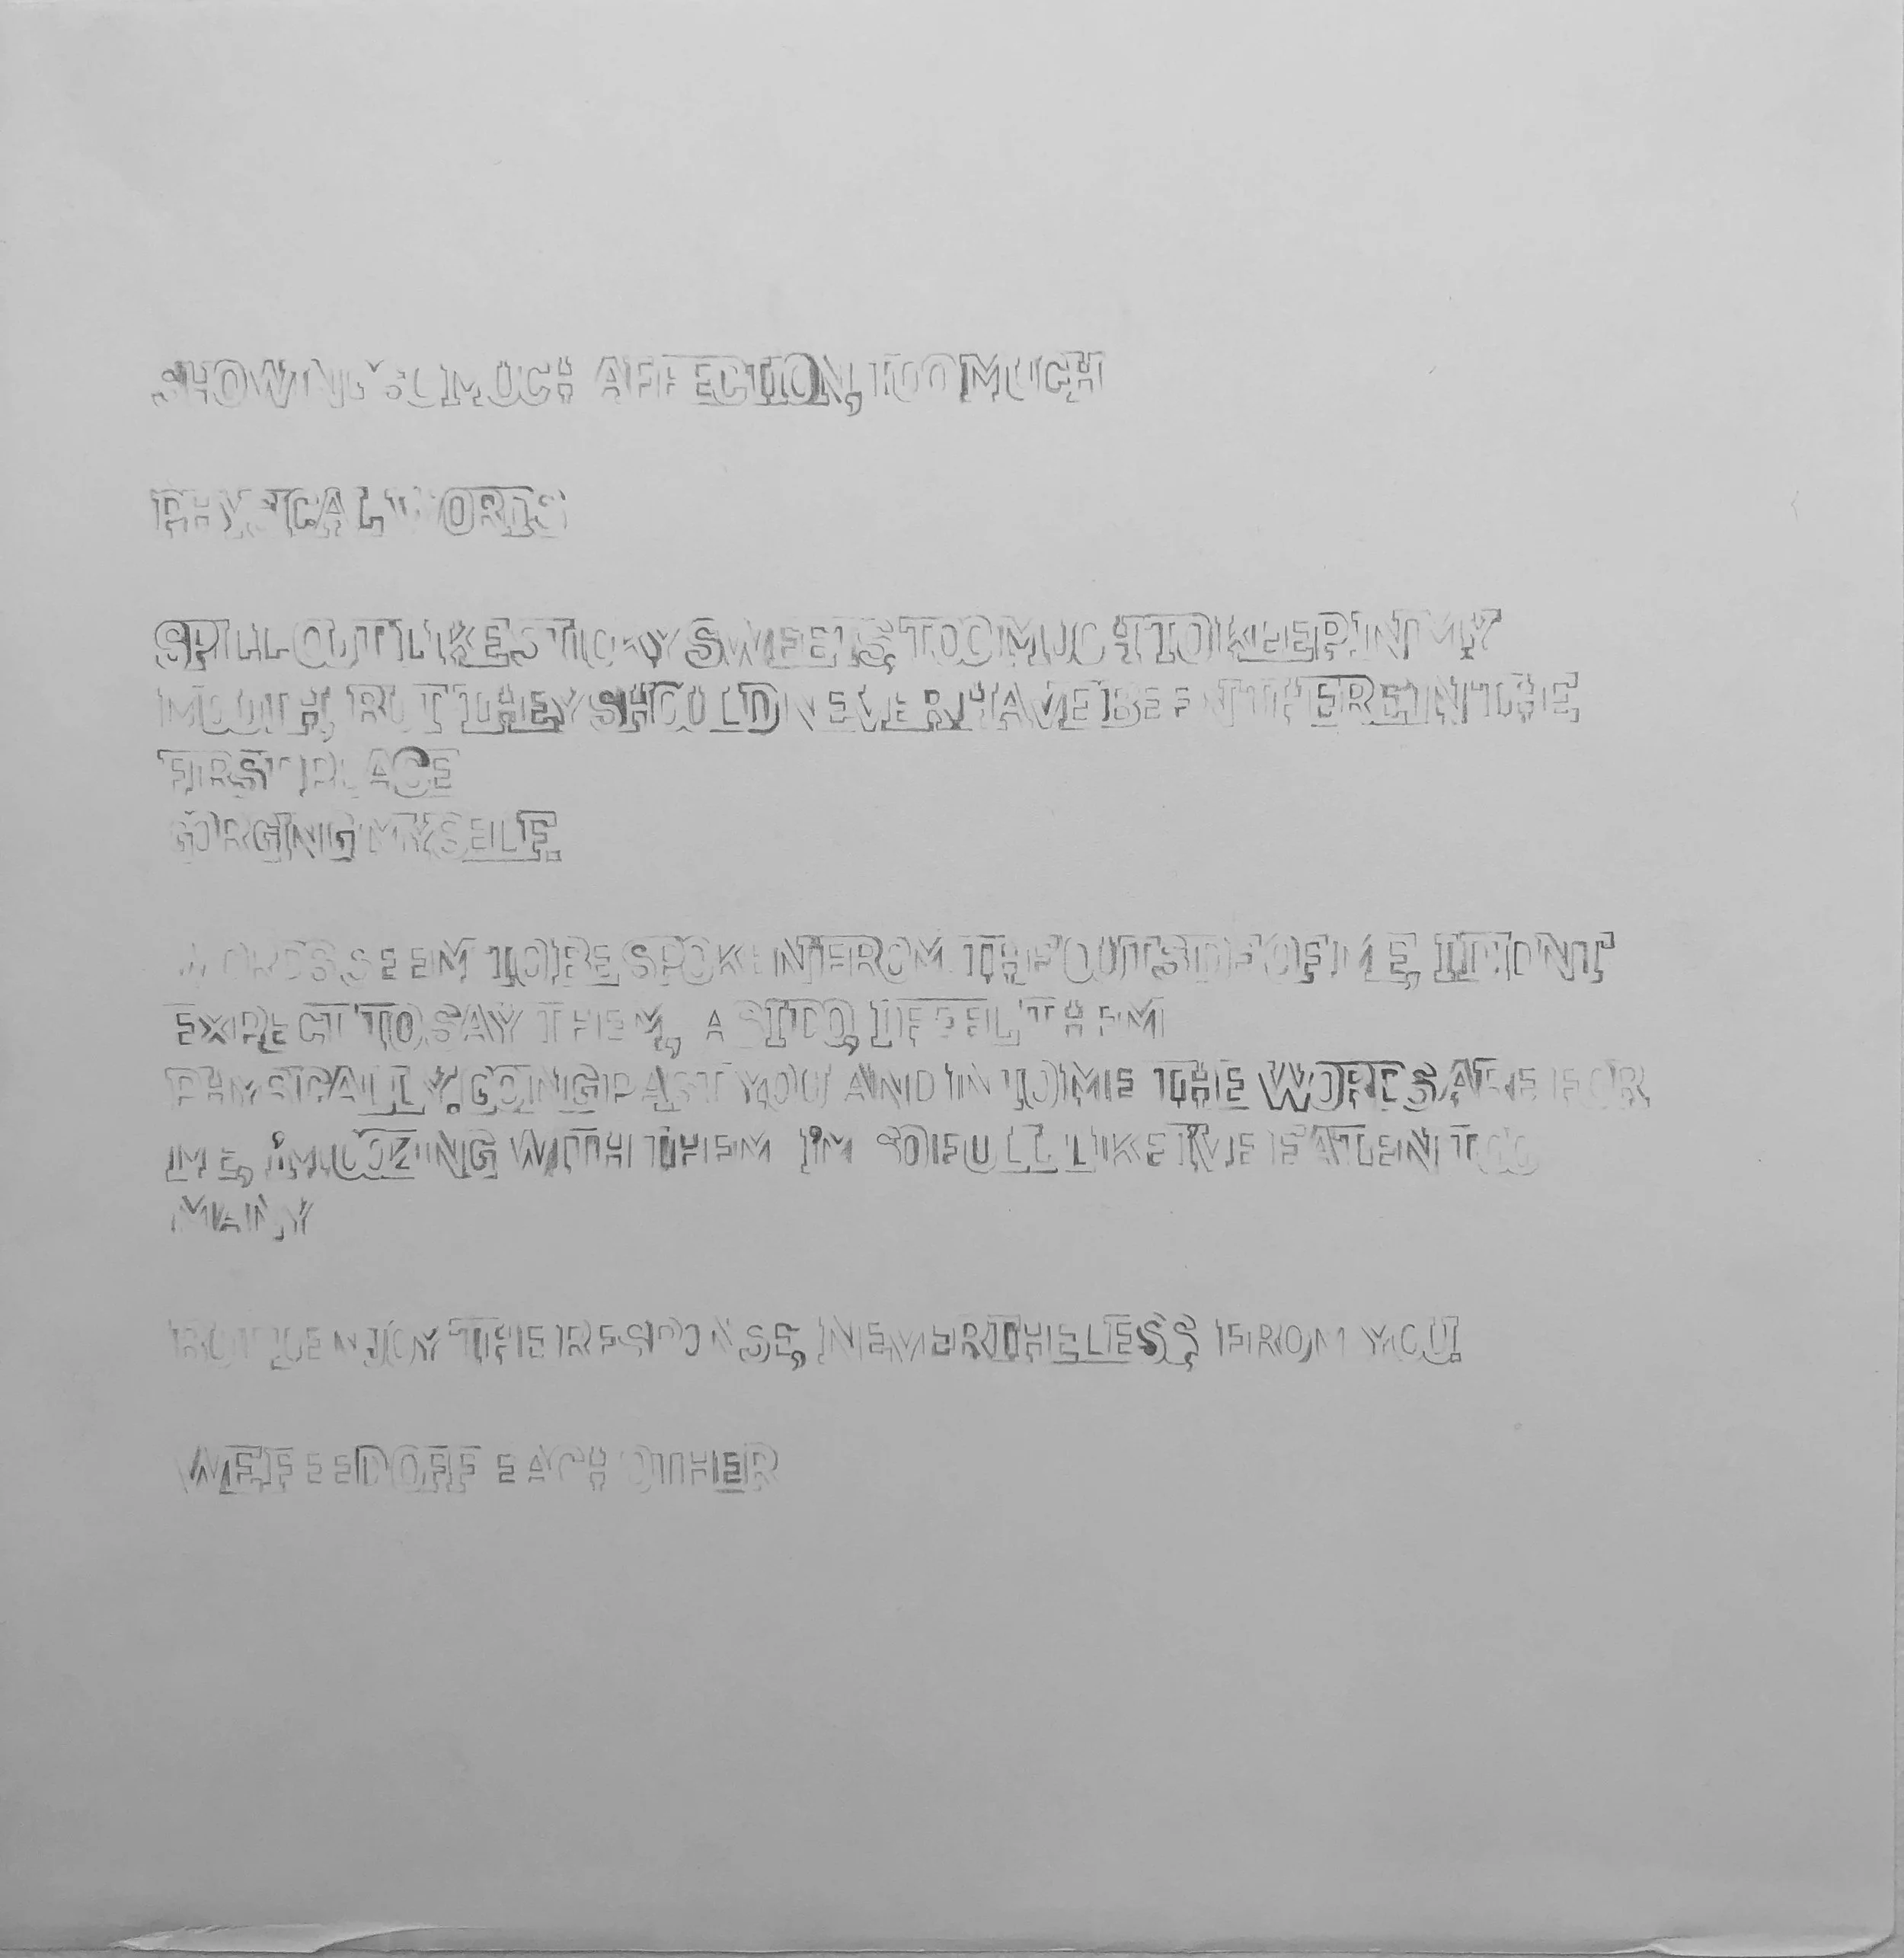 SHOWING SO MUCH AFFECTION, TOO MUCH
PHYSICAL WORDS
SPILL OUT LIKE STICKY SWEETS, TOO MUCH TO KEEP IN MY
MOUTH, BUT THEY SHOULD NEVER HAVE BEEN THERE IN THE
FIRST PLACE
GORGING MYSELF.
WORDS SEEM TO BE SPOKEN FROM THE OUTSIDE OF ME, I DIDNT
EXPECT TO SAY THEM, AS I DO, I FEEL THEM
PHYSICALLY. GOING PAST YOU AND IN TO ME THE WORDS ARE FOR
ME, I'M OOZING WITH THEM I'M SO FULL LIKE I'VE EATEN TOO
MANY
BUT I ENJOY THE RESPONSE, NEVERTHELESS, FROM YOU.
WE FEED OFF EACH OTHER